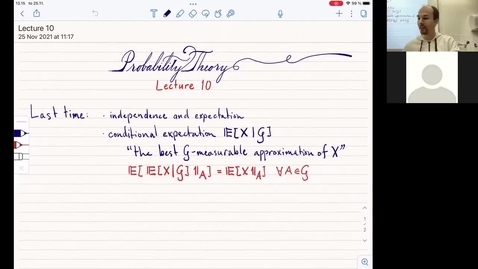 13.15 to 25.11.
39 %
Lecture 10
25 Nov 2021 at 11:17
Probability Theory
Lecture 10
Last time: · independence and expectation
· conditional expectation 𝔼[X|G]
"the best G-measurable approximation of X"
𝔼[ 𝔼[X|G] 𝟙_A] = 𝔼[X𝟙_A] ∀A∈G